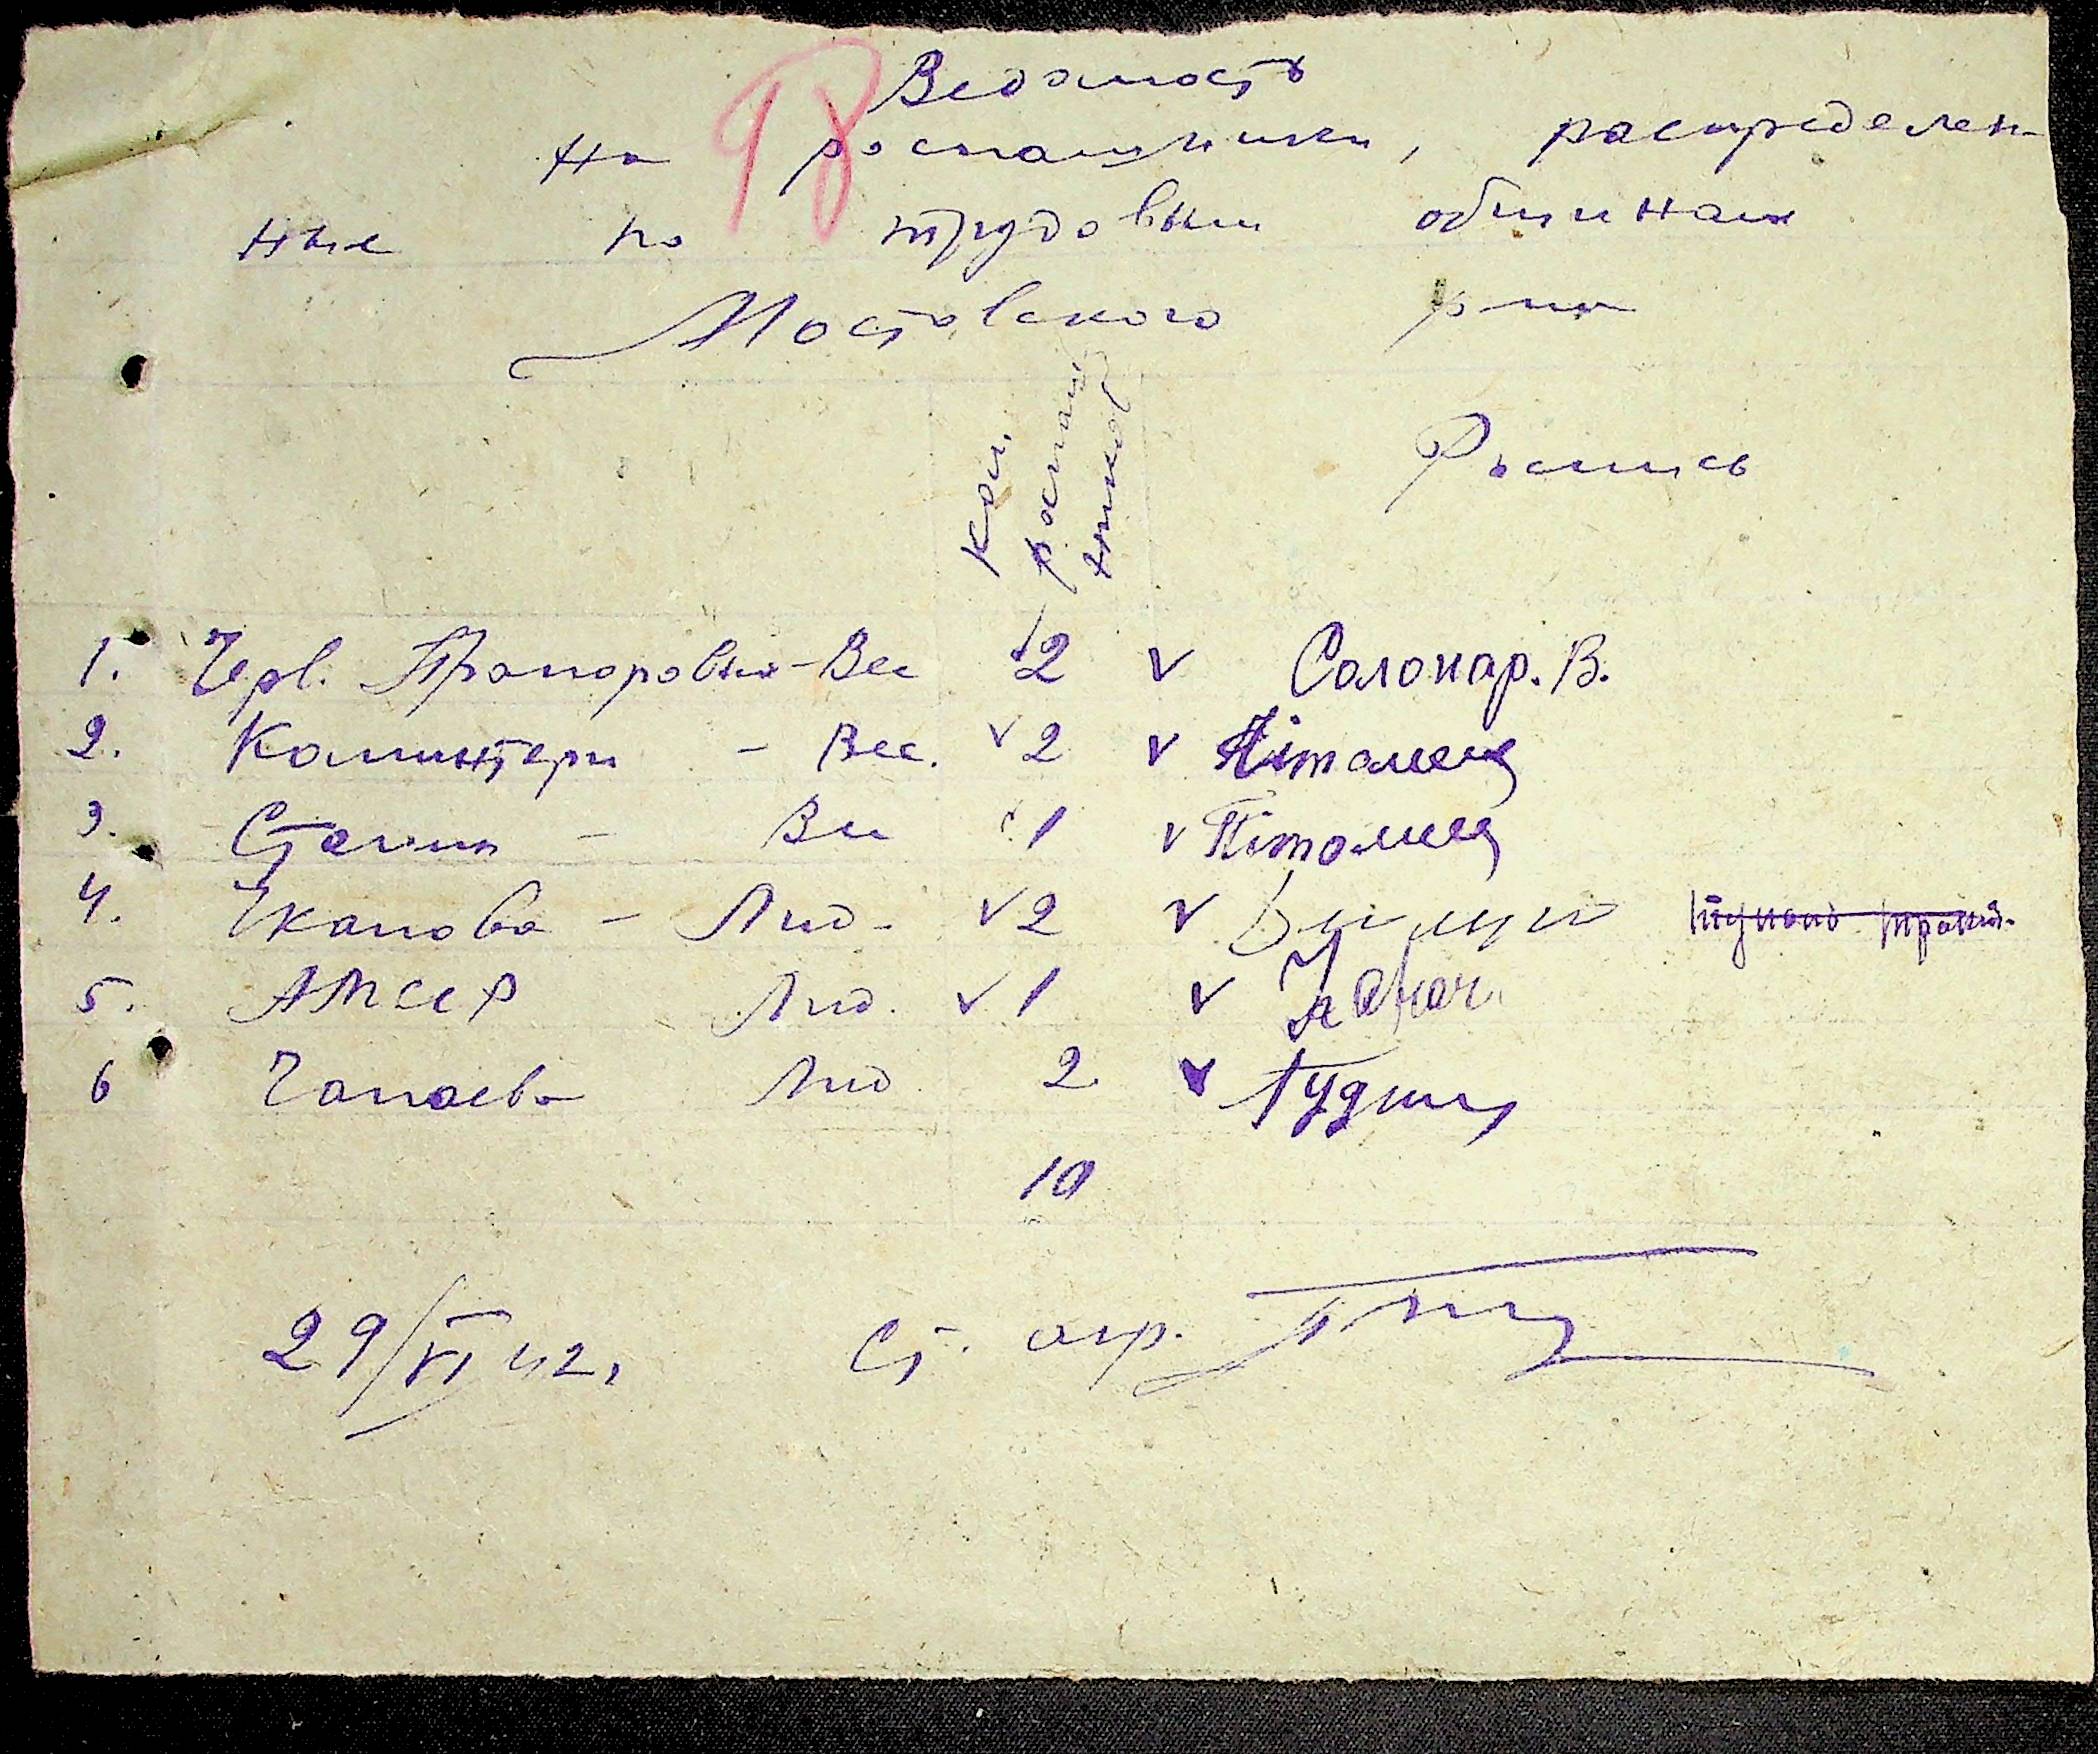 98
Ведомость
на роспашники, распределен
ные по трудовым общинам
Мостовского р-на
Кол. роспаш
ников
Роспись
1. Черв. Прапоровка - Вес 2 v Солонар. В.
2. Коминтерн - Вес. v 2 v Пітомец
3. Сталин - Вес 1 v Пітомец
4. Чкалова - Люд. v 2 v
5. АМССР Люд. v 1 v
6 Чапаева Люд. 2 v Гудим
10
29/VI 42г Ст. агр.